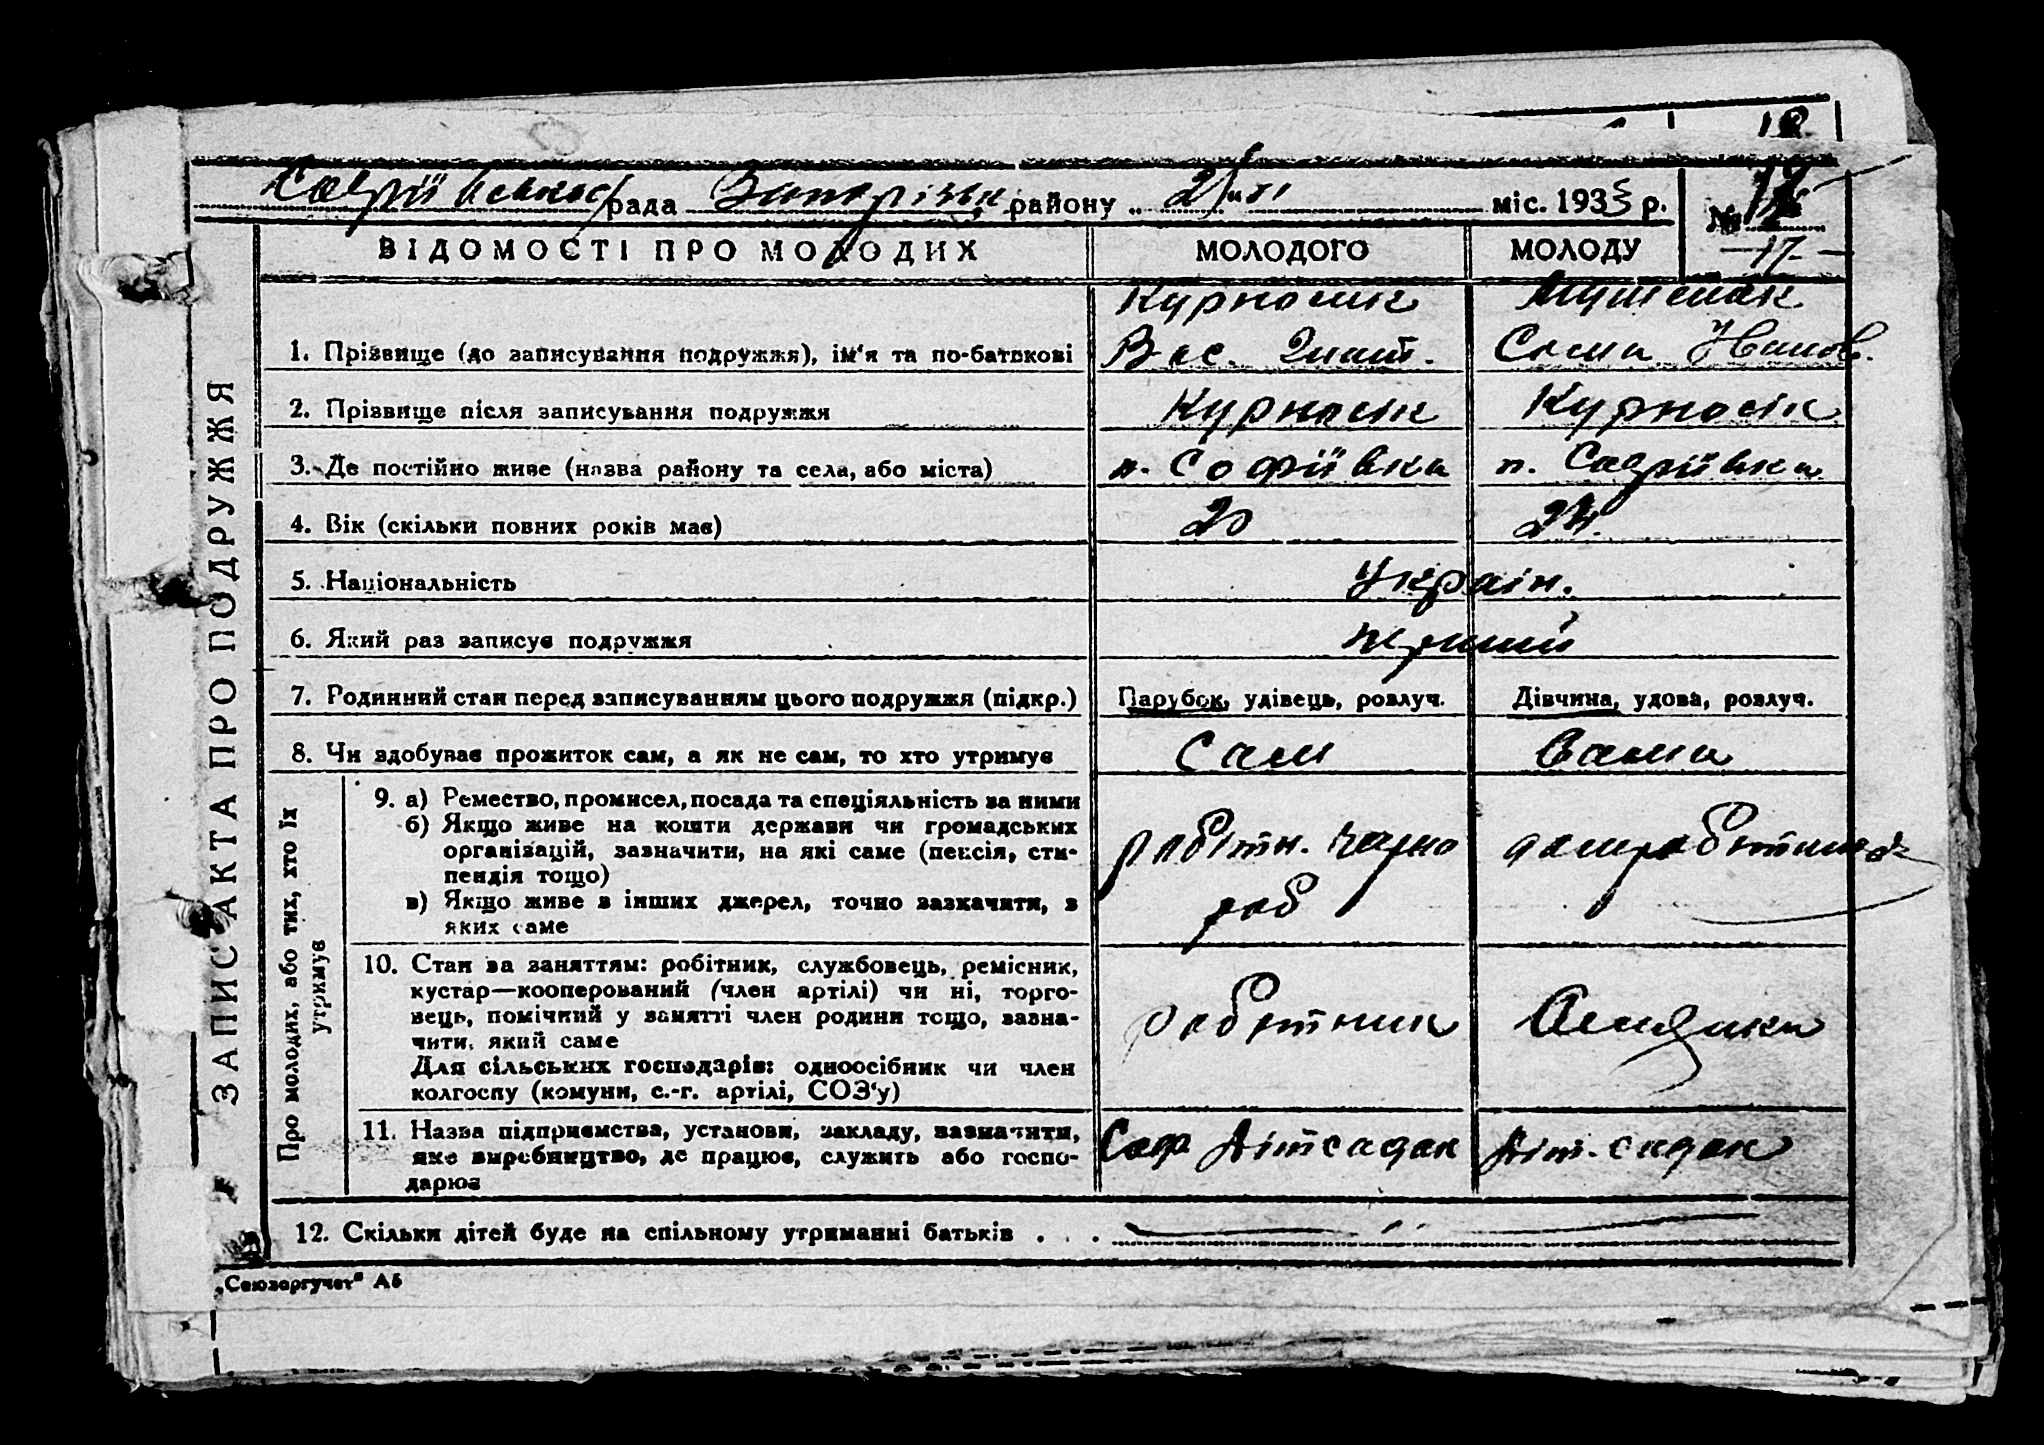 18
Софіївська рада Запорізьк. району „2“ VI міс. 1933 р.
№ 17
— 17 —
ВІДОМОСТІ ПРО МОЛОДИХ МОЛОДОГО МОЛОДУ
Курносик
1. Прізвище (до записування подружжя), ім'я та по-батькові Вас. Гнат. Іванов.
2. Прізвище після записування подружжя Курносік Курносік
3. Де постійно живе (назва району та села, або міста) п. Софіївка п. Софіївка
4. Вік (скільки повних років має) 20
5. Національність Україн.
6. Який раз записує подружжя перший
7. Родинний стан перед записуванням цього подружжя (підкр.) Парубок, удівець, розлуч. Дівчина, удова, розлуч.
8. Чи здобуває прожиток сам, а як не сам, то хто утримує Сам Сама
9. а) Ремество, промисел, посада та спеціяльність за ними
б) Якщо живе на кошти держави чи громадських
організацій, зазначити, на які саме (пенсія, сти-
пендія тощо)
в) Якщо живе з інших джерел, точно зазначити, з
яких саме
робітн. чорно домробітниця
роб
10. Стан за заняттям: робітник, службовець, ремісник,
кустар—кооперований (член артілі) чи ні, торго-
вець, помічний у занятті член родини тощо, зазна-
чити, який саме
Для сільських господарів: одноосібник чи член
колгоспу (комуни, с.-г. артілі, СОЗ'у)
робітник
11. Назва підприємства, установи, закладу, зазначити,
яке виробництво, де працює, служить або госпо-
дарює
Соф. Дітсадок Діт. садок
12. Скільки дітей буде на спільному утриманні батьків . . .
„Союзоргучет“ А5
ЗАПИС АКТА ПРО ПОДРУЖЖЯ
Про молодих, або тих, хто їх
утримує